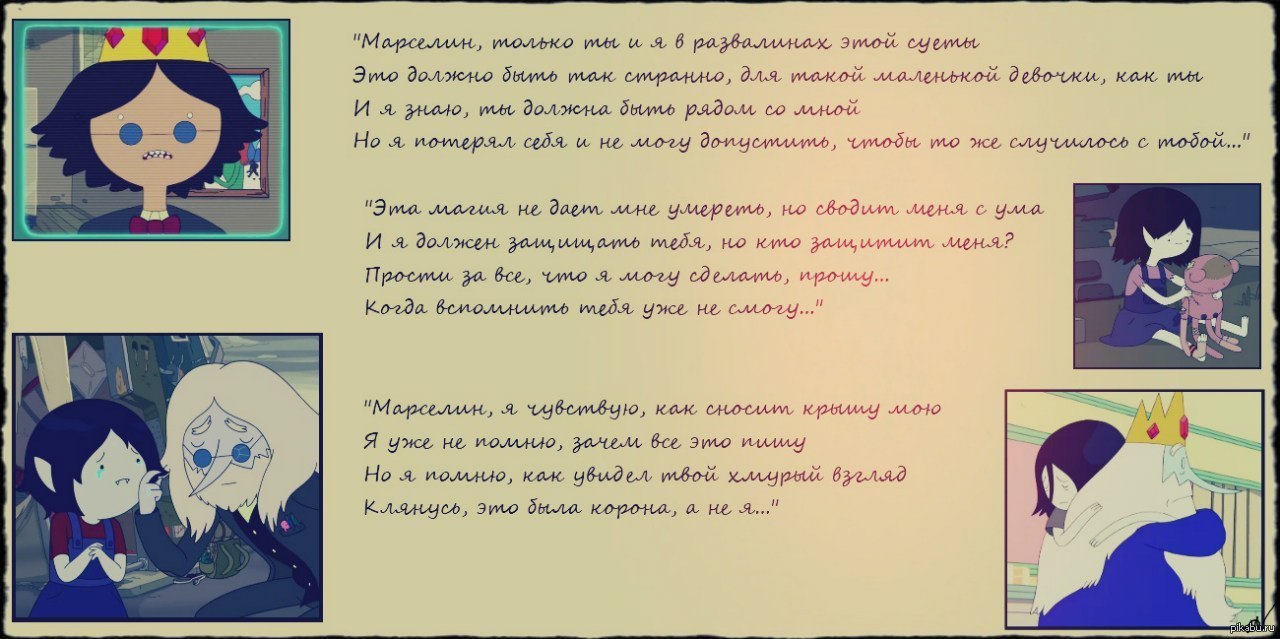 "Марселин, только ты и я в развалинах этой суеты
Это должно быть так странно, для такой маленькой девочки, как ты
И я знаю, ты должна быть рядом со мной
Но я потерял себя и не могу допустить, чтобы то же случилось с тобой..."
"Эта магия не дает мне умереть, но сводит меня с ума
И я должен защищать тебя, но кто защитит меня?
Прости за все, что я могу сделать, прошу...
Когда вспомнить тебя уже не смогу..."
"Марселин, я чувствую, как сносит крышу мою
Я уже не помню, зачем все это пишу
Но я помню, как увидел твой хмурый взгляд
Клянусь, это была корона, а не я..."
pikabu.ru